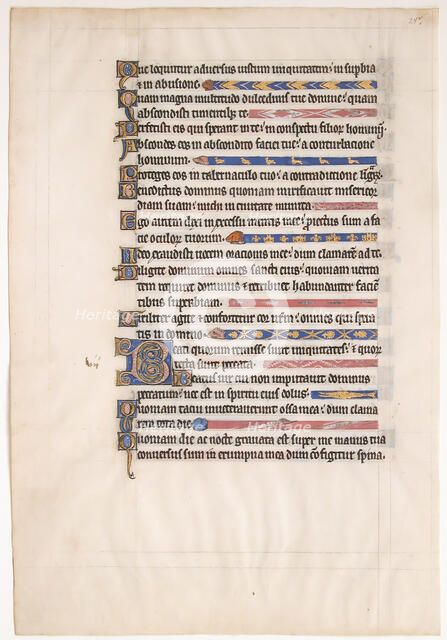 Que loquntur adversus iustum iniquitatem: in supbia
& in abusione.
Quam magna multitudo dulcedinis tue domine: quam
abscondisti timentib; te.
Perfecisti eis qui sperant in te: in conspectu filior hominū
Abscondes eos in abscondito faciei tue: a conturbatione
hominum.
Proteges eos in tabernaculo tuo: a contradictione
Benedictus dominus quoniam mirificavit misericor
diam suam: michi in civitate munita.
Ego autem dixi in excessu mentis mee: proiectus sum a fa
cie oculor tuorum.
Ideo exaudisti vocem oracionis mee: dum clamarē ad te
Diligite dominum omnes sancti eius: quoniam verita
tem requiret dominus & retribuet habundanter faciē
tibus superbiam.
Viriliter agite & confortetur cor vestrm: omnes qui spera
tis in domino.
Beati quorum remisse sunt iniquitates: & quor
tecta sunt peccata.
Beatus vir cui non imputavit dominus
peccatum: nec est in spiritu eius dolus.
Quoniam tacui inveteraverunt ossa mea: dum clama
rem tota die.
Quoniam die ac nocte gravata est super me manus tua
conversus sum in erumpna mea dum cōfigitur spina.
Heritage